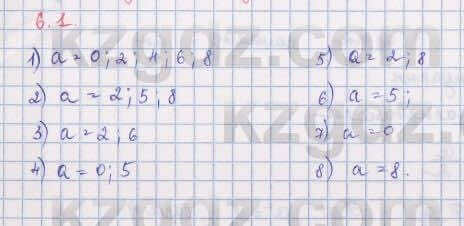 6.1.
1) a = 0; 2; 4; 6; 8
2) a = 2; 5; 8
3) a = 2; 6
4) a = 0; 5
5) a = 2; 8
6) a = 5;
7) a = 0
8) a = 8.
kzgoz.com
kzgoz.com
kzgoz.com